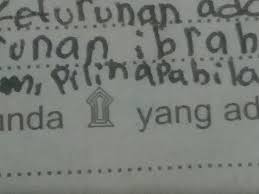 keturunan ada
runan ibrah
m, pilih apabila
anda ۩ yang ad